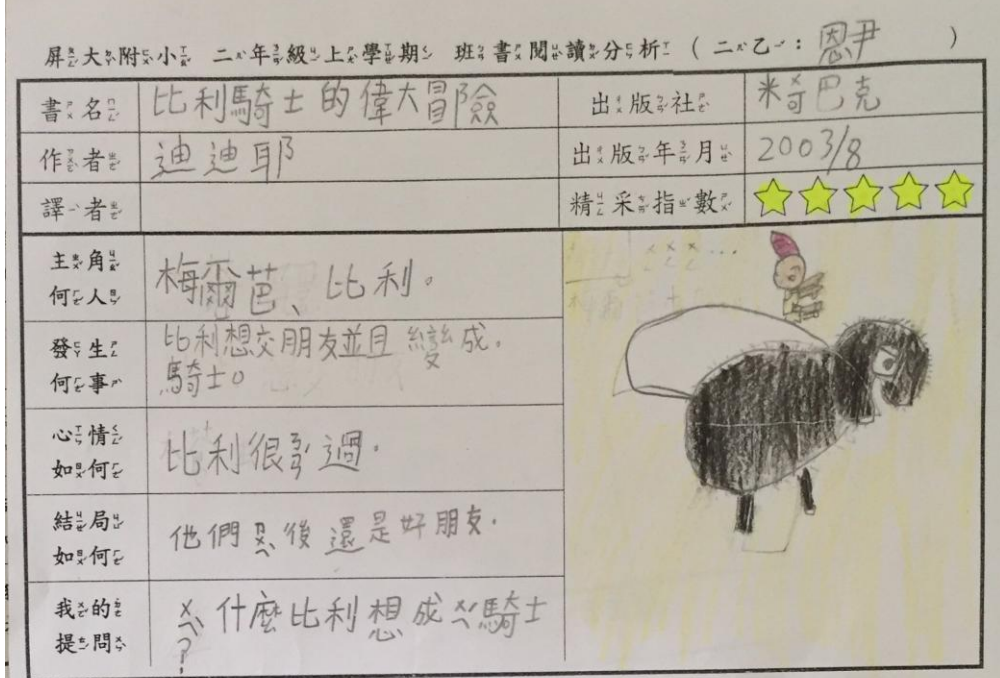 屏大附小 二年級上學期 班書閱讀分析（二乙：恩尹）
書名 比利騎士的偉大冒險 出版社 米奇巴克
作者 迪迪耶 出版年月 2003/8
譯者 精采指數
主角何人 梅爾芭、比利。
發生何事 比利想交朋友並且變成。
騎士。
心情如何 比利很ㄋㄢˊ過。
結局如何 他們ㄗㄨㄟˋ後還是好朋友。
我的提問 ㄨㄟˋ什麼比利想成ㄨㄟˊ騎士
？